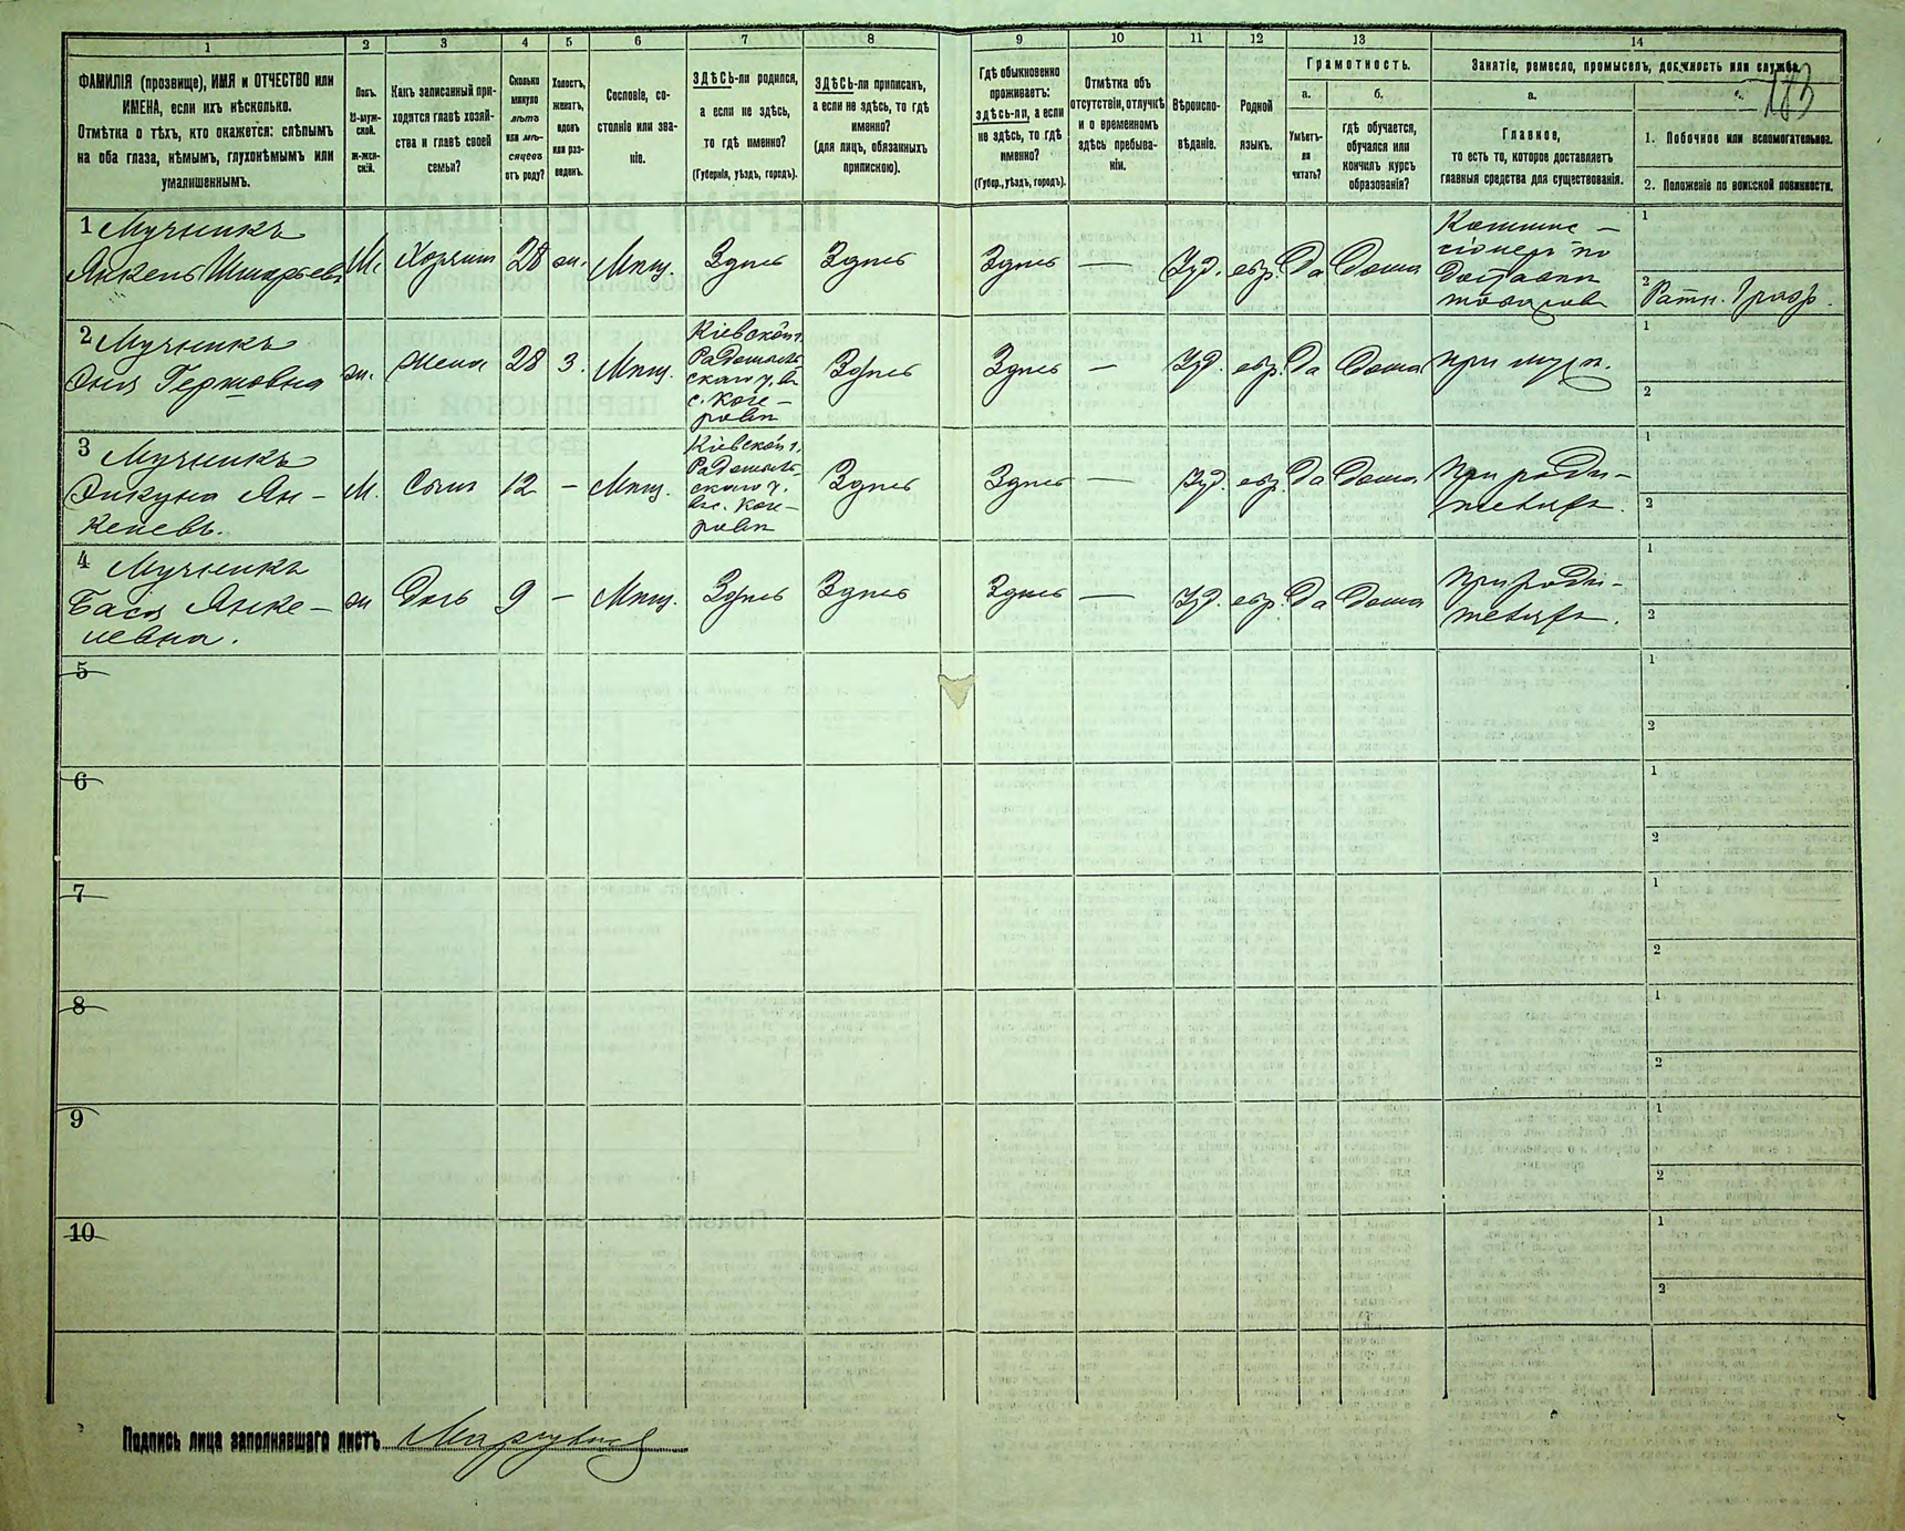 1 2 3 4 5 6 7 8 9 10 11 12 13 14
183
ФАМИЛІЯ (прозвище), ИМЯ и ОТЧЕСТВО или
ИМЕНА, если ихъ нѣсколько.
Отмѣтка о тѣхъ, кто окажется: слѣпымъ
на оба глаза, нѣмымъ, глухонѣмымъ или
умалишеннымъ.
Полъ.
М-муж-
ской.
Ж-жен-
скій.
Какъ записанный при-
ходятся главѣ хозяй-
ства и главѣ своей
семьи?
Сколько
минуло
лѣтъ
или мѣ-
сяцевъ
отъ роду?
Холостъ,
женатъ,
вдовъ
или раз-
веденъ.
Сословіе, со-
стояніе или зва-
ніе.
ЗДѢСЬ-ли родился,
а если не здѣсь,
то гдѣ именно?
(Губернія, уѣздъ, городъ).
ЗДѢСЬ-ли приписанъ,
а если не здѣсь, то гдѣ
именно?
(для лицъ, обязанныхъ
припискою).
Гдѣ обыкновенно
проживаетъ:
здѣсь-ли, а если
не здѣсь, то гдѣ
именно?
(Губер., уѣздъ, городъ).
Отмѣтка объ
отсутствіи, отлучкѣ
и о временномъ
здѣсь пребыва-
ніи.
Вѣроиспо-
вѣданіе.
Родной
языкъ.
Грамотность.
а.
Умѣетъ-
ли
читать?
б.
гдѣ обучается,
обучался или
кончилъ курсъ
образованія?
Занятіе, ремесло, промыселъ, должность или служба.
а.
Главное,
то есть то, которое доставляетъ
главныя средства для существованія.
1. Побочное или вспомогательное.
2. Положеніе по воинской повинности.
1 Мучникъ
Янкель
М.
Хозяинъ
28
ж.
Мѣщ.
Здѣсь
Здѣсь
Здѣсь
—
Іуд.
евр.
Да
Дома
Коммис-
сіонеръ по
Доставки
товаровъ
1
2 Ратн. 1 разр.
2 Мучникъ
Гершовна
ж.
Жена
28
З.
Мѣщ.
Кіевской г.
Радомысль-
скаго у. в
с. Коче-
ровѣ
Здѣсь
Здѣсь
—
Іуд.
евр.
Да
Дома
При мужѣ.
1
2
3 Мучникъ
Ян-
келевъ.
М.
Сынъ
12
—
Мѣщ.
Кіевской г.
Радомысль-
скаго у.
въ с. Коче-
ровѣ
Здѣсь
Здѣсь
—
Іуд.
евр.
Да
Дома
При роди-
теляхъ.
1
2
4 Мучникъ
Бася Янке-
левна.
ж
Дочь
9
—
Мѣщ.
Здѣсь
Здѣсь
Здѣсь
—
Іуд.
евр.
Да
Дома
При роди-
теляхъ.
1
2
5
1
2
6
1
2
7
1
2
8
1
2
9
1
2
10
1
2
Подпись лица заполнявшаго листъ